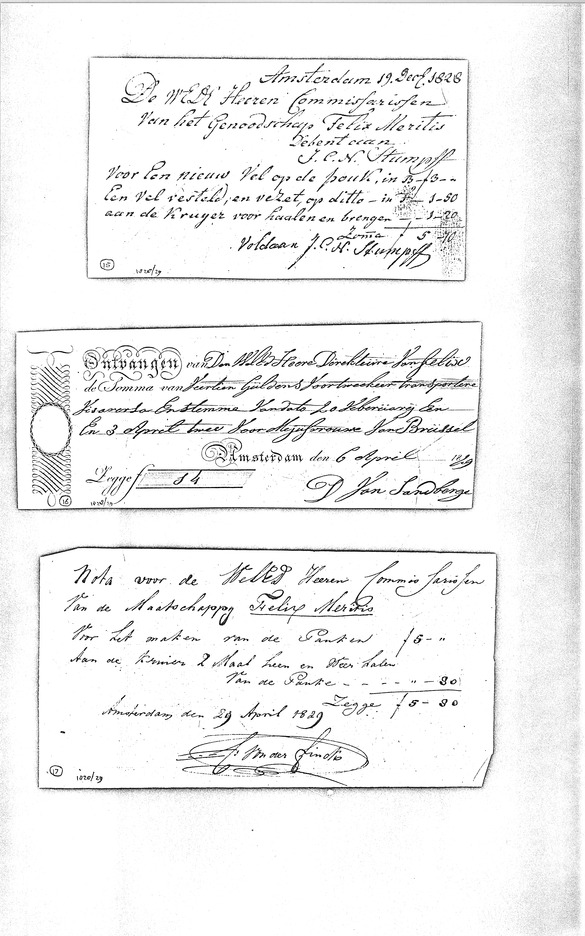 Amsterdam 19. Dec. 1828
De WEd Heeren Commissarissen
Van het Genootschap Felix Meritis
Debent aan
J. C. N. Stumpff
Voor Een nieuw Vel op de pouk, in B - f 3 - -
Een Vel vesteld, en vezet, op ditto - in - 1 - 50
aan de Kruyer voor haalen en brengen - - 1 - 20
Somma f 5 - 70
Voldaan J. C. N. Stumpff
15
1020/29
Ontvangen van Den Heere Direkteure Van Felix
de Somma van Veertien Guldens Voor tweekeer transporteren
En Stemme Van dato 20 Februarij En
En 3 April twee Voor Mejufvrouw Van Brussel
Amsterdam den 6 April 1829
Zegge f 14
D Van Sandberge
16
1020/29
Nota voor de WelEd Heeren Commissarissen
Van de Maatschappy Felix Meritis
Voor het maken van de Panken f 5 - "
Aan de Kruier 2 Maal heen en Weer halen
Van de Panke - - - - " - 80
Zegge f 5 - 80
Amsterdam den 29 April 1829
17
1020/29